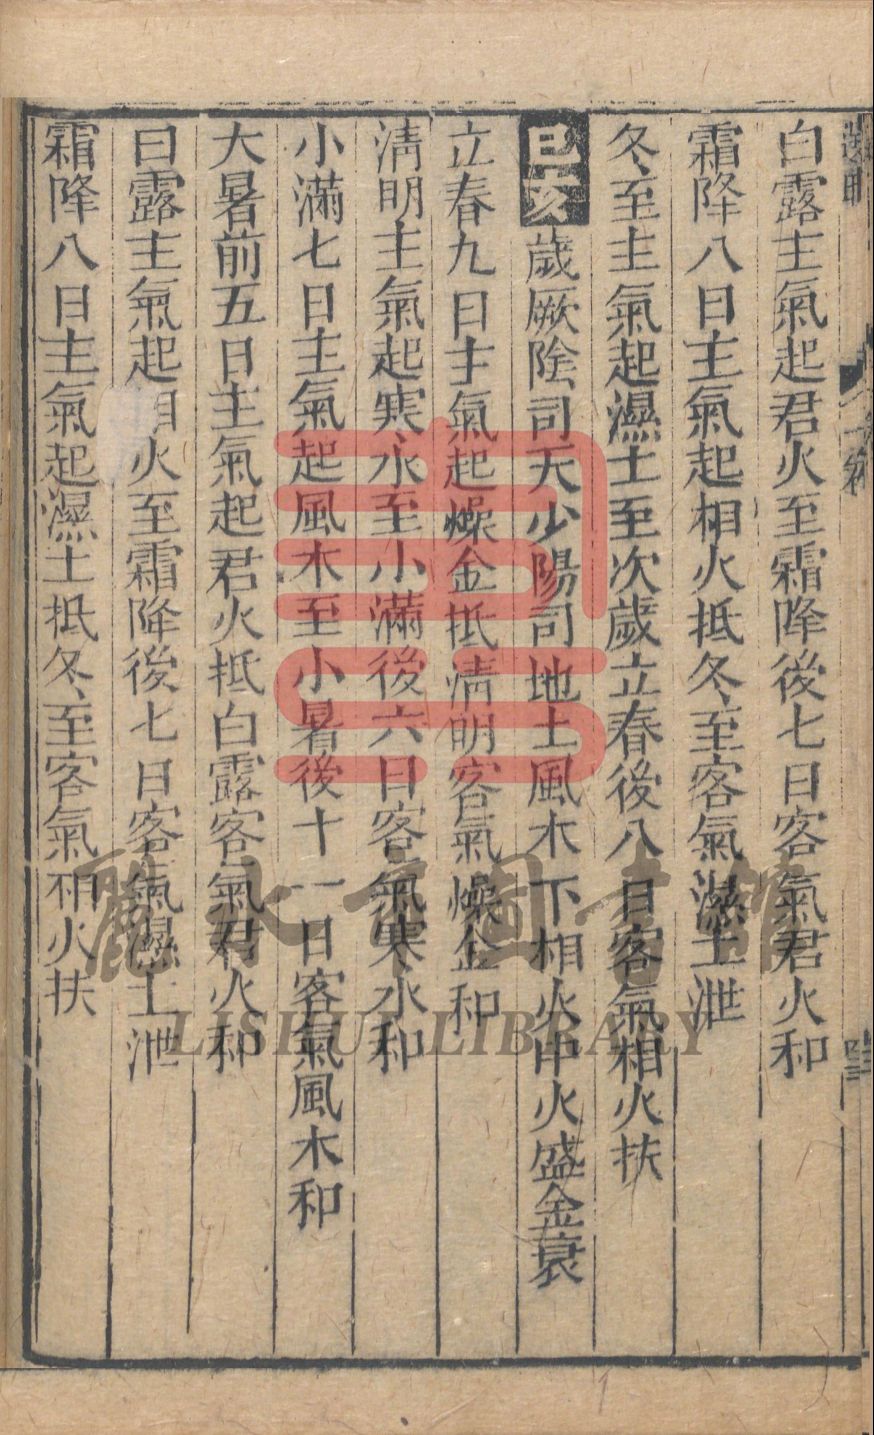 白露主氣起君火至霜降後七日客氣君火和
霜降八日主氣起相火抵冬至客氣濕土泄
冬至主氣起濕土至次歲立春後八日客氣相火扶
巳亥歲厥陰司天少陽司地土風木下相火中火盛金衰
立春九日主氣起燥金抵清明客氣燥金和
清明主氣起寒水至小滿後六日客氣寒水和
小滿七日主氣起風木至小暑後十一日客氣風木和
大暑前五日主氣起君火抵白露客氣君火和
白露主氣起相火至霜降後七日客氣濕土泄
霜降八日主氣起濕土抵冬至客氣相火扶
麗水市圖書館
LISHUI LIBRARY